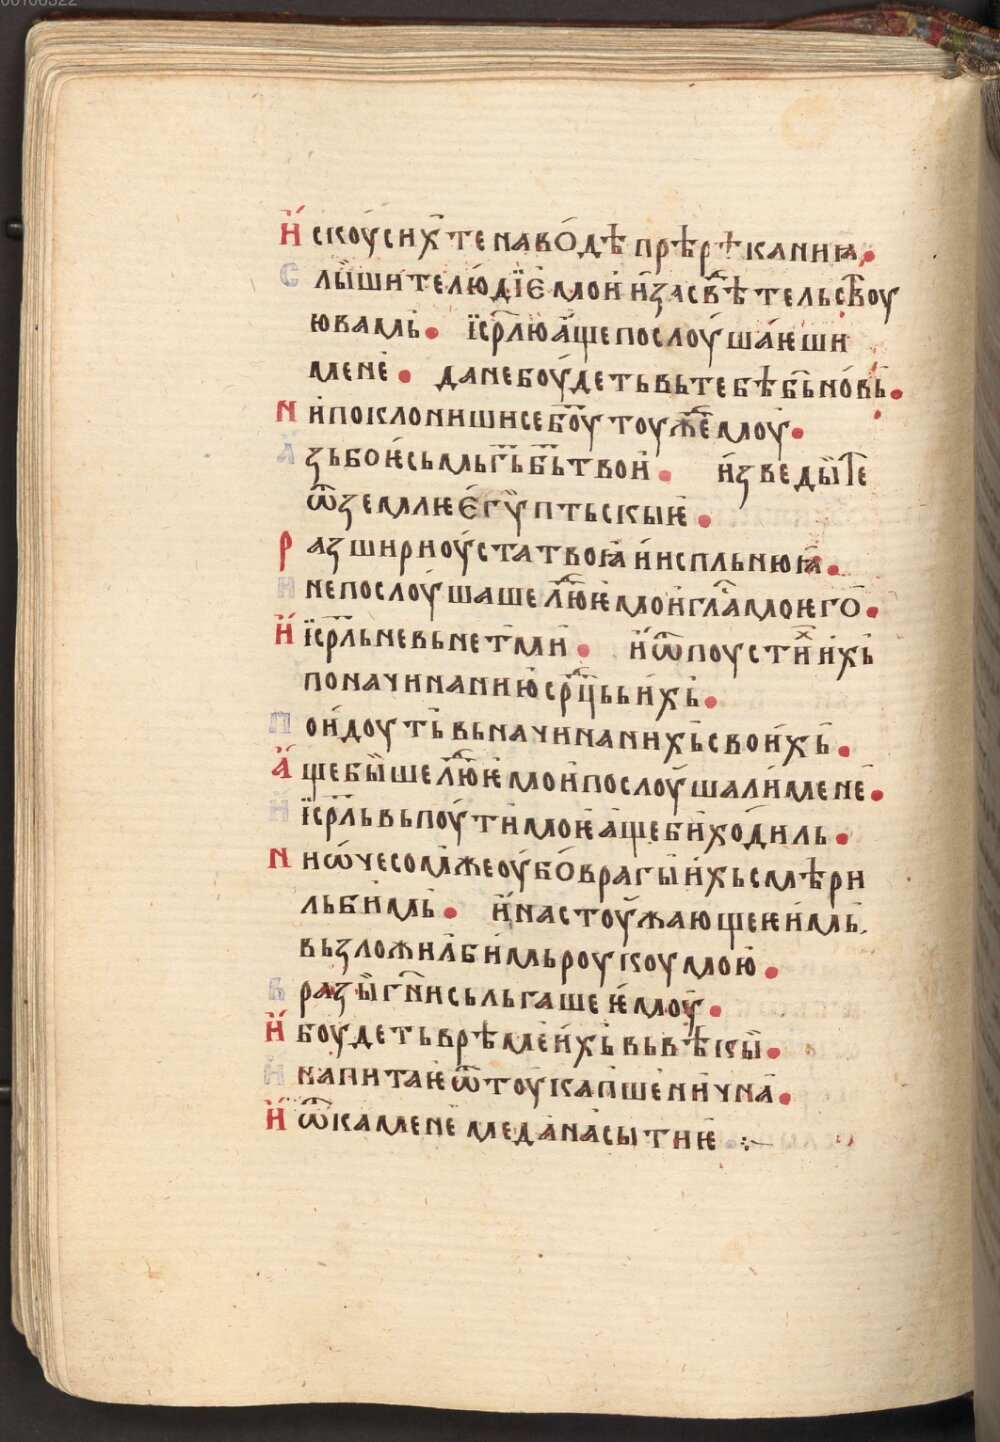 00106322
И҆скоу́сих̾ те на во́дѣ прѣрѣканиꙗ.
Слы́шите лю́дїе мои и҆ засвѣтельств꙽оу
ю вамь. їс҃рлю а҆ще послоу́шаѥши
мене. да не боу́деть вь тебѣ б҃ь но́вь.
Ни поклонишисе б҃оу тоуж꙽емоу.
А҆зь бо ѥ҆смь г҃ь б҃ь твои. и҆зведы те
ѿ землꙗѥ е҆гу́птьскыѥ.
Разшири оу҆ста твоꙗ и҆ испльню ꙗ.
И не послоу́шаше лю҃ѥ мои гла҃ моѥго.
И҆ їс҃рль не вьнет мѝ. и҆ ѿпоустих꙽ и҆хь
по начинанию ср҃ць и҆хь.
Пои́доуть вь начинанихь свои́хь.
А҆ще бы́ше лю҃ѥ мои послоу́шали мене.
И҆ їс҃рль вь поути моѥ а҆ще би хо́диль.
Ни ѡ чесомже оу҆бо врагы и҆хь смѣри
ль бимь. и҆ на стоужающеѥ имь.
вьзложил би́мь роукоу мою.
Вразы́ г҃ни сьльгаше ѥ҆моу.
И҆ боу́деть врѣме и҆хь вь вѣкы.
И҆ напита ѥ ѿ тоука пшени́чна.
И҆ ѿ камене меда насыти ѥ ⁘